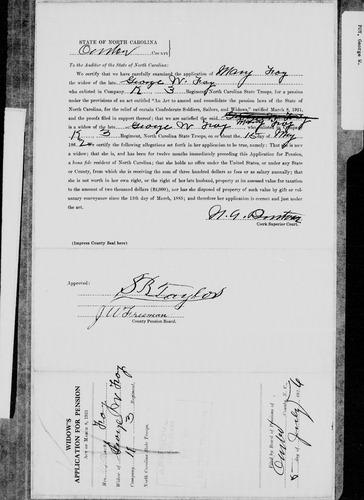 FOY, George W.
STATE OF NORTH CAROLINA
Onslow COUNTY
To the Auditor of the State of North Carolina:
We certify that we have carefully examined the application of Mary Foy
the widow of the late George W. Foy
who enlisted in Company K 3 Regiment, North Carolina State Troops, for a pension
under the provisions of an act entitled "An Act to amend and consolidate the pension laws of the State of
North Carolina, for the relief of certain Confederate Soldiers, Sailors, and Widows," ratified March 8, 1921,
and the proofs filed in support thereof; that we are satisfied the said Mary Foy
is a widow of the late George W Foy who
K 3 Regiment, North Carolina State Troops, on or about the day of May
186 certify the following allegations set forth in her application to be true, namely: That she is now
a widow; that she is, and has been for twelve months immediately preceding this Application for Pension,
a bona fide resident of North Carolina; that she holds no office under the United States, or under any State or
County, from which she is receiving the sum of three hundred dollars as fees or as salary annually; that
she is not worth in her own right, or the right of her late husband, property at its assessed value for taxation
to the amount of two thousand dollars ($2,000), nor has she disposed of property of such value by gift or vol-
untary conveyance since the 11th day of March, 1885; and therefore her application is correct and just under
the act.
Clerk Superior Court.
(Impress County Seal here)
Approved:
S B Taylor
J W Freeman
County Pension Board.
WIDOW'S
APPLICATION FOR PENSION
ACT OF MARCH 8, 1921
Mrs. Foy
Widow of George W Foy
Company K 3 Regiment,
North Carolina State Troops.
Filed by Board of Pensions of
Onslow County, N. C.
day of July